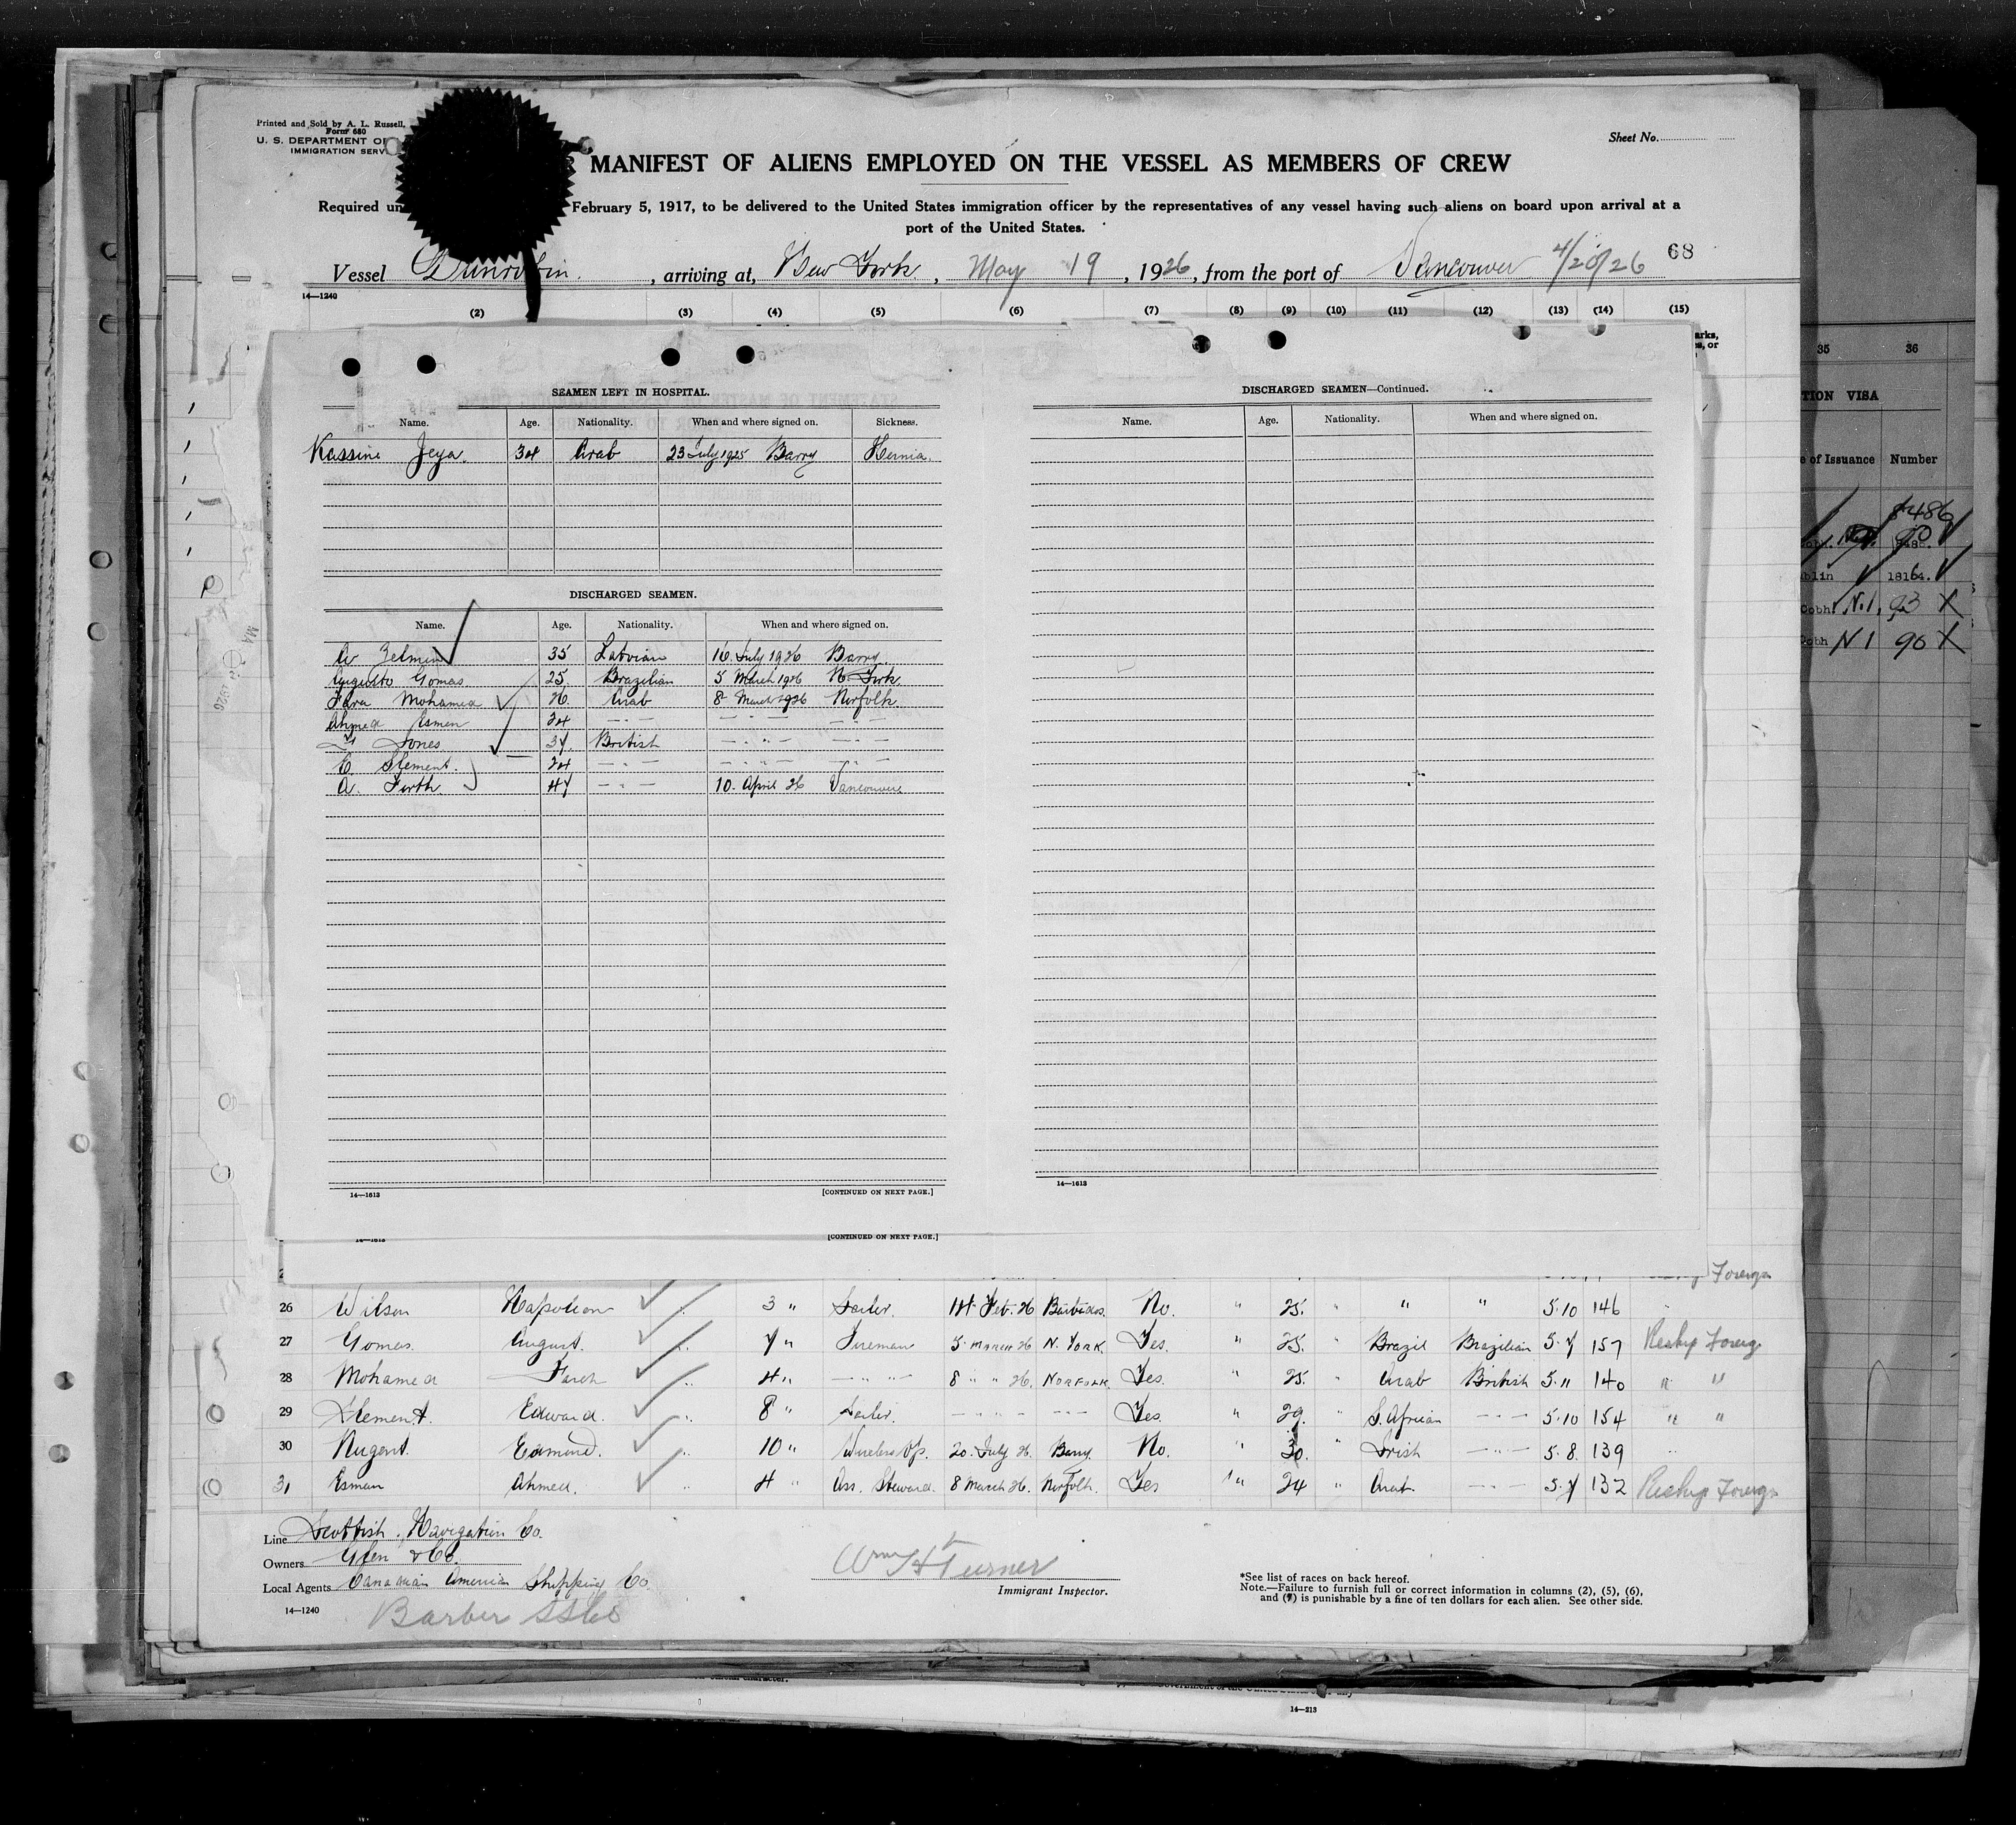 Printed and Sold by A. L. Russell,
Form 680
U. S. DEPARTMENT O
IMMIGRATION SERV
Sheet No.
R MANIFEST OF ALIENS EMPLOYED ON THE VESSEL AS MEMBERS OF CREW
Required un February 5, 1917, to be delivered to the United States immigration officer by the representatives of any vessel having such aliens on board upon arrival at a
port of the United States.
Vessel Dunrobin, arriving at, New York, May 19, 1926, from the port of Vancouver 4/20/26 68
14—1240
(2) (3) (4) (5) (6) (7) (8) (9) (10) (11) (12) (13) (14) (15)
arks,
s, or
SEAMEN LEFT IN HOSPITAL.
Name. Age. Nationality. When and where signed on. Sickness.
Kassine Jeya. 34 Arab 23 July 1925 Barry Hernia.
DISCHARGED SEAMEN.
Name. Age. Nationality. When and where signed on.
A Zelmin 35 Latvian 16 July 1926 Barry
Augusto Gomas 25 Brazilian 5 March 1926 N. York
Fara Mohamed 26 Arab 8 March 1926 Norfolk
Ahmed Esmen 24 — " — — " — — " —
Jones 34 British — " — — " —
E. Slement. 24 — " — — " — — " —
A. Firth. 47 — " — 10. April 26 Vancouver
14—1613 [CONTINUED ON NEXT PAGE.]
DISCHARGED SEAMEN—Continued.
Name. Age. Nationality. When and where signed on.
14—1613
14—1613 [CONTINUED ON NEXT PAGE.]
Foreign
26 Wilson Napoleon 3 " Sailor. 14 Feb. 26 Barbados. No. " 25. " " " 5.10 146
27 Gomes. August. 7 " Fireman 5 March 26 N. York Yes. " 25. " Brazil Brazilian 5.7 157 Reship Foreig
28 Mohamed Farah 4 " — " — 8 " " 26. Norfolk Yes. " 25. " Arab British 5.11 140 " "
29 Slement. Edward. 8 " Sailor. — " — — " — Yes. " 29. " S. African — " — 5.10 154 " "
30 Nugent. Edmund. 10 " Wireless Op. 20. July 26. Barry. No. " 30. " Irish — " — 5.8. 139
31 Esman Ahmed. 4 " Ass. Steward. 8 March 26. Norfolk. Yes " 24 " Arab. — " — 5.7 132 Reship Foreign
Line Scottish Navigation Co.
Owners Glen & Co.
Local Agents Canadian American Shipping Co.
14—1240
Barber SS Co
Wm H Turner
Immigrant Inspector.
*See list of races on back hereof.
Note.—Failure to furnish full or correct information in columns (2), (5), (6),
and (7) is punishable by a fine of ten dollars for each alien. See other side.
35 36
TION VISA
e of Issuance Number
8486
90
blin 18164.
Cobh. N.1, 93 X
Cobh N 1 90 X
14—213